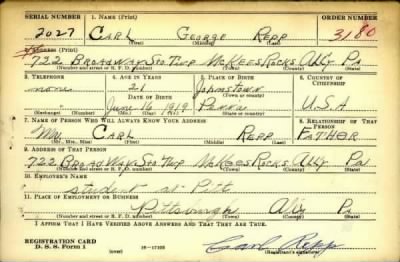 SERIAL NUMBER 1. NAME (Print) ORDER NUMBER
2027 CARL GEORGE REPP 3180
(First) (Middle) (Last)
2. ADDRESS (Print)
722 BROADWAY STO TWP McKEES ROCKS ALLY PA
(Number and street or R. F. D. number) (Town) (County) (State)
3. TELEPHONE 4. AGE IN YEARS 5. PLACE OF BIRTH 6. COUNTRY OF CITIZENSHIP
none 21 Johnstown
DATE OF BIRTH (Town or county)
June 16 1919 Penna U.S.A
(Exchange) (Number) (Mo.) (Day) (Yr.) (State or country)
7. NAME OF PERSON WHO WILL ALWAYS KNOW YOUR ADDRESS 8. RELATIONSHIP OF THAT PERSON
Mr. CARL REPP FATHER
(Mr., Mrs., Miss) (First) (Middle) (Last)
9. ADDRESS OF THAT PERSON
722 BROADWAY STO TWP McKEES ROCKS ALLY PA
(Number and street or R. F. D. number) (Town) (County) (State)
10. EMPLOYER'S NAME
student at Pitt
11. PLACE OF EMPLOYMENT OR BUSINESS
Pittsburgh Ally Pa
(Number and street or R. F. D. number) (Town) (County) (State)
I AFFIRM THAT I HAVE VERIFIED ABOVE ANSWERS AND THAT THEY ARE TRUE.
REGISTRATION CARD
D. S. S. Form 1 (over) 16-17105 Carl Repp
(Registrant's signature)